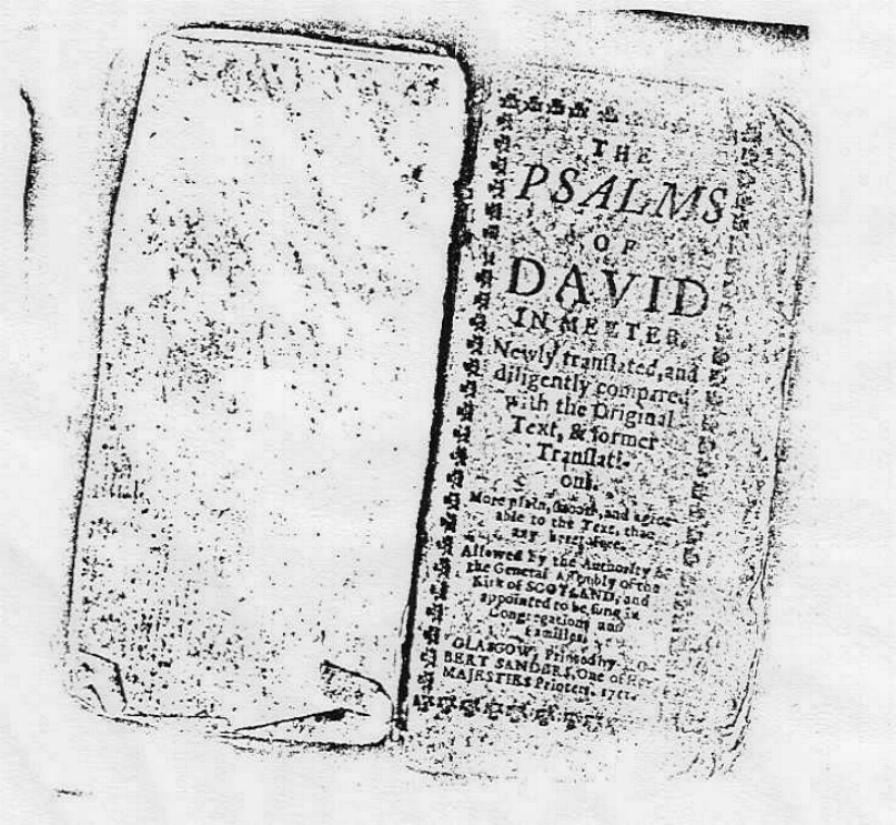 THE
PSALMS
OF
DAVID
IN MEETER.
Newly tranſlated, and
diligently compared
with the Original
Text, & former
Tranſlati-
ons.
More plain, ſmooth, and agree-
able to the Text, than
any heretofore.
Allowed by the Authority of
the General Aſſembly of the
Kirk of SCOTLAND, and
appointed to be ſung in
Congregations and
Families.
GLASGOW, Printed by
BERT SANDERS, One of Her
MAJESTIES Printers.